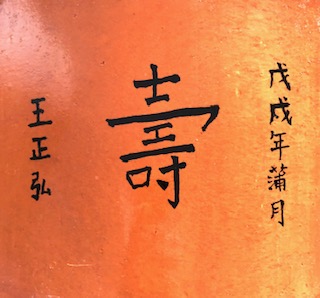 戊戌年蒲月
壽
王正弘